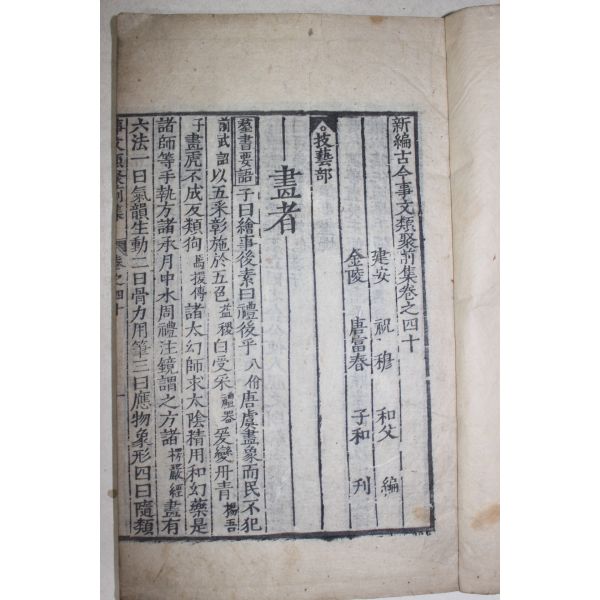 新編古今事文類聚前集卷之四十
建安 祝穆 和父 編
金陵 唐富春 子和 刊
技藝部
畫者
羣書要語 子曰繪事後素曰禮後乎 八佾 唐虞畫象而民不犯
前武詔 以五采彰施於五色 益稷 白受采 禮器 爰變丹青 楊吾
子 畫虎不成反類狗 馬援傳 諸太幻師求太陰精用和幻藥是
諸師等手執方諸承月中水周禮注鏡謂之方諸 楞嚴經 畫有
六法一曰氣韻生動二曰骨力用筆三曰應物象形四曰隨類
事文類聚前集 卷之四十 一